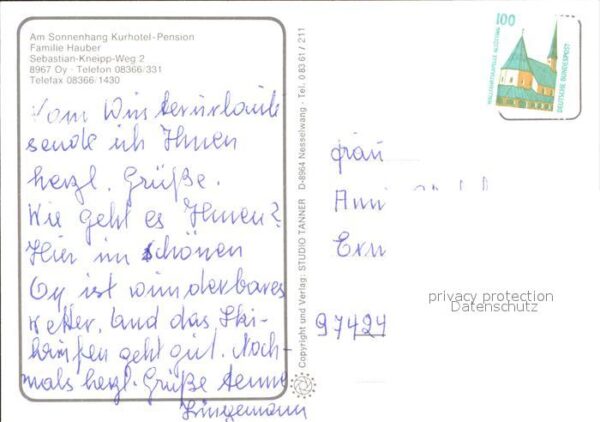 Am Sonnenhang Kurhotel-Pension
Familie Hauber
Sebastian-Kneipp-Weg 2
8967 Oy - Telefon 08366/331
Telefax 08366/1430
Vom Winterurlaub
sende ich Ihnen
herzl. Grüße.
Wie geht es Ihnen?
Hier im schönen
Oy ist wunderbares
Wetter, und das Ski-
laufen geht gut. Noch-
mals herzl. Grüße
Copyright und Verlag: STUDIO TANNER D-8964 Nesselwang - Tel. 0 83 61 / 211
100
WALLFAHRTSKAPELLE ALTÖTTING
DEUTSCHE BUNDESPOST
Frau
Anni
97424
privacy protection
Datenschutz